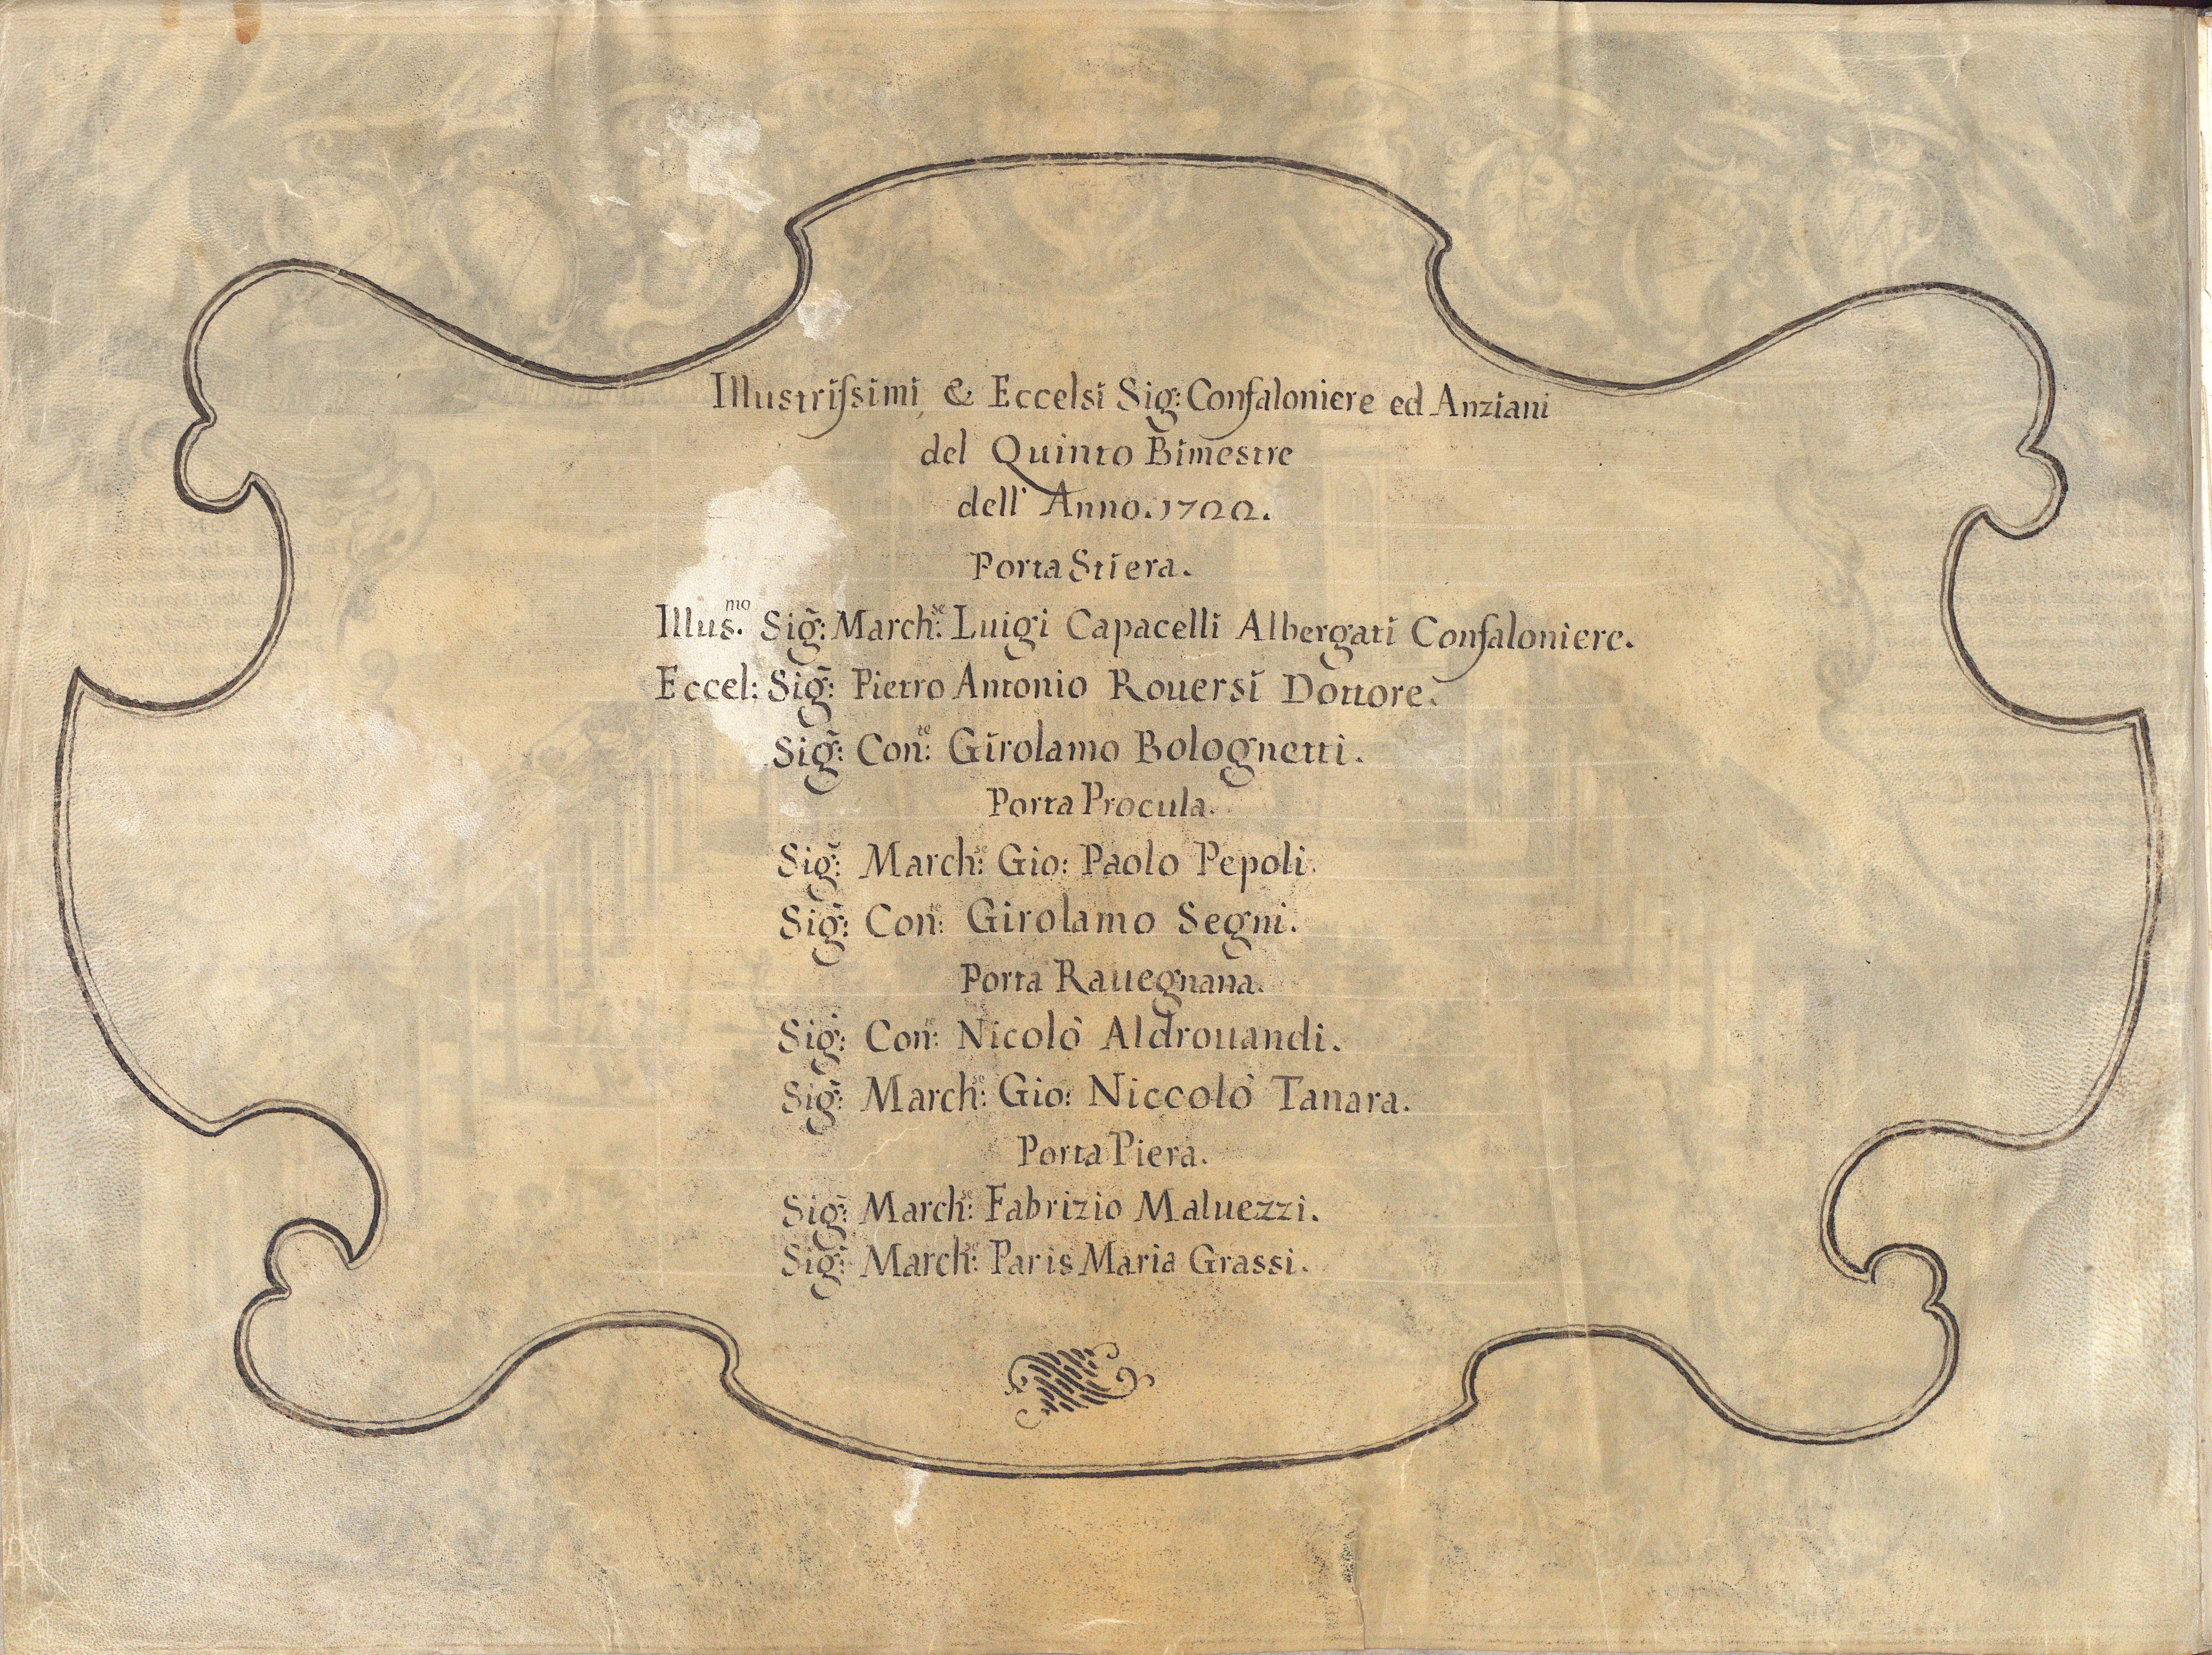 Illustriſsimi, & Eccelsi Sig̃: Confaloniere ed Anziani
del Quinto Bimestre
dell' Anno. 1722.
Porta Stiera.
Illus.ᵐᵒ Sig̃: March:ˢᵉ Luigi Capacelli Albergati Confaloniere.
Eccel: Sig̃: Pietro Antonio Rouersi Dottore.
Sig̃: Con:ᵗᵉ Girolamo Bolognetti.
Porta Procula.
Sig̃: March:ˢᵉ Gio: Paolo Pepoli.
Sig̃: Con:ᵗᵉ Girolamo Segni.
Porta Rauegnana.
Sig̃: Con:ᵗᵉ Nicolò Aldrouandi.
Sig̃: March:ˢᵉ Gio: Niccolò Tanara.
Porta Piera.
Sig̃: March:ˢᵉ Fabrizio Maluezzi.
Sig̃: March:ˢᵉ Paris Maria Grassi.